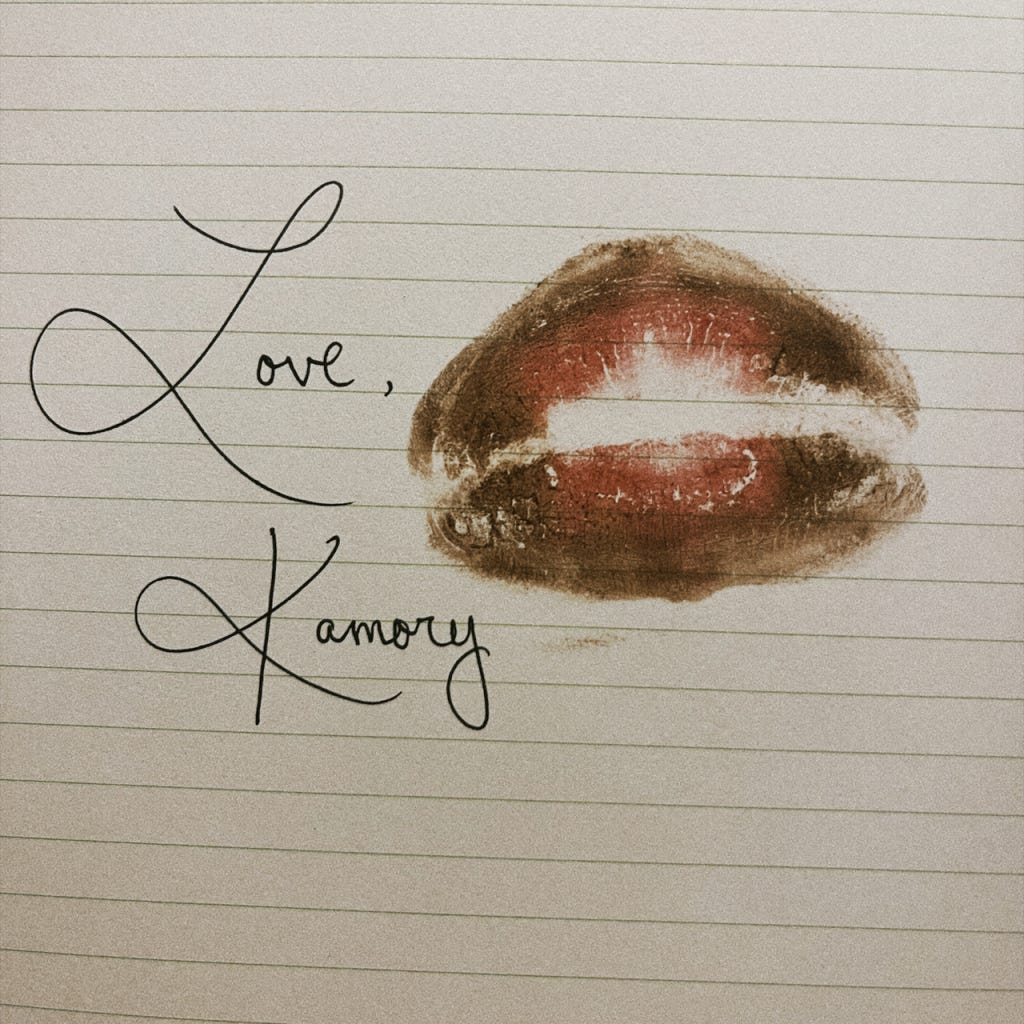 Love,
Kamory